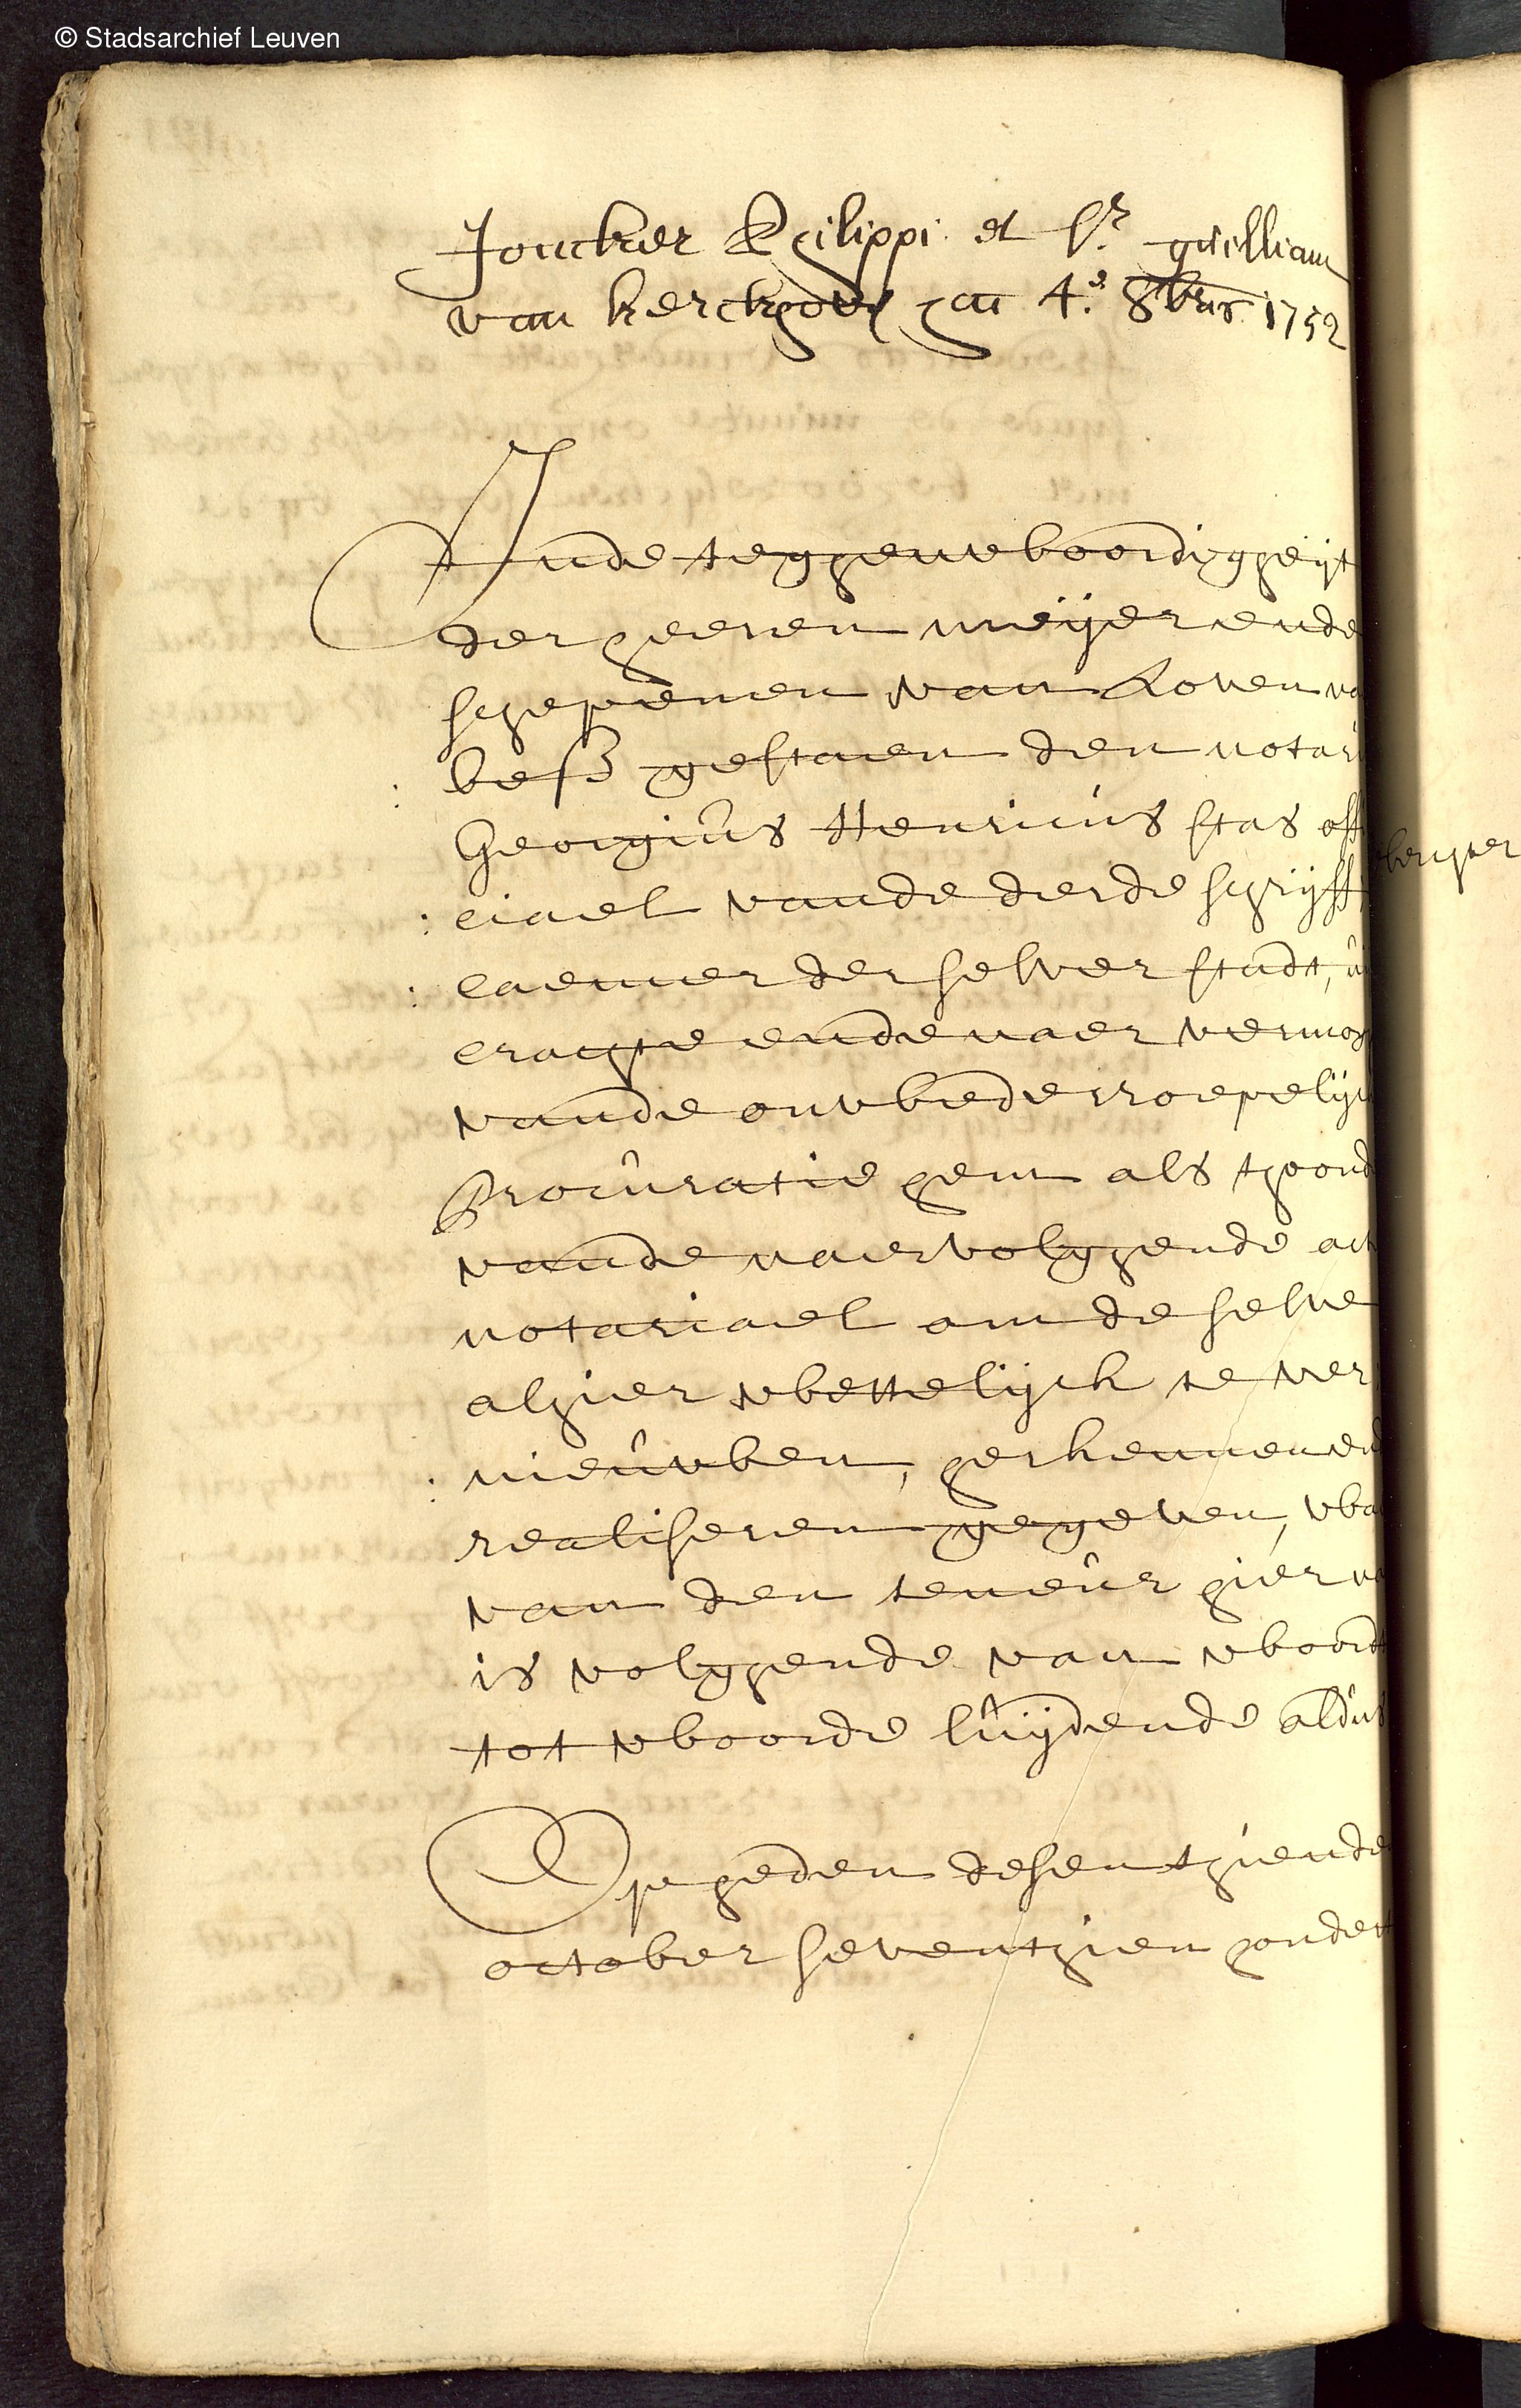 © Stadsarchief Leuven
Joncker Philippi et Sr. guilliam
van kerckhove hac 4.e 8bris 1752
Inde teghenwoordigheijt
der heeren meijer ende
schepenen van Loven
gestaen den notari
: Georgius Henricus stas offi
: ciael vande derde schrijff
: caemer der selver stadt,
crachte ende naer vermog
vande onwederroepelijc
Procuratie hem als thoond
vande naervolghende act
notariael om de selve
alhier wettelijck te ver
: nieuwen, herkennen en
realiseren gegeven, wa
van den teneur hier na
is volghende van woord
tot woorde luijdende aldus
Op heden desen thiende
october seventhien hondert